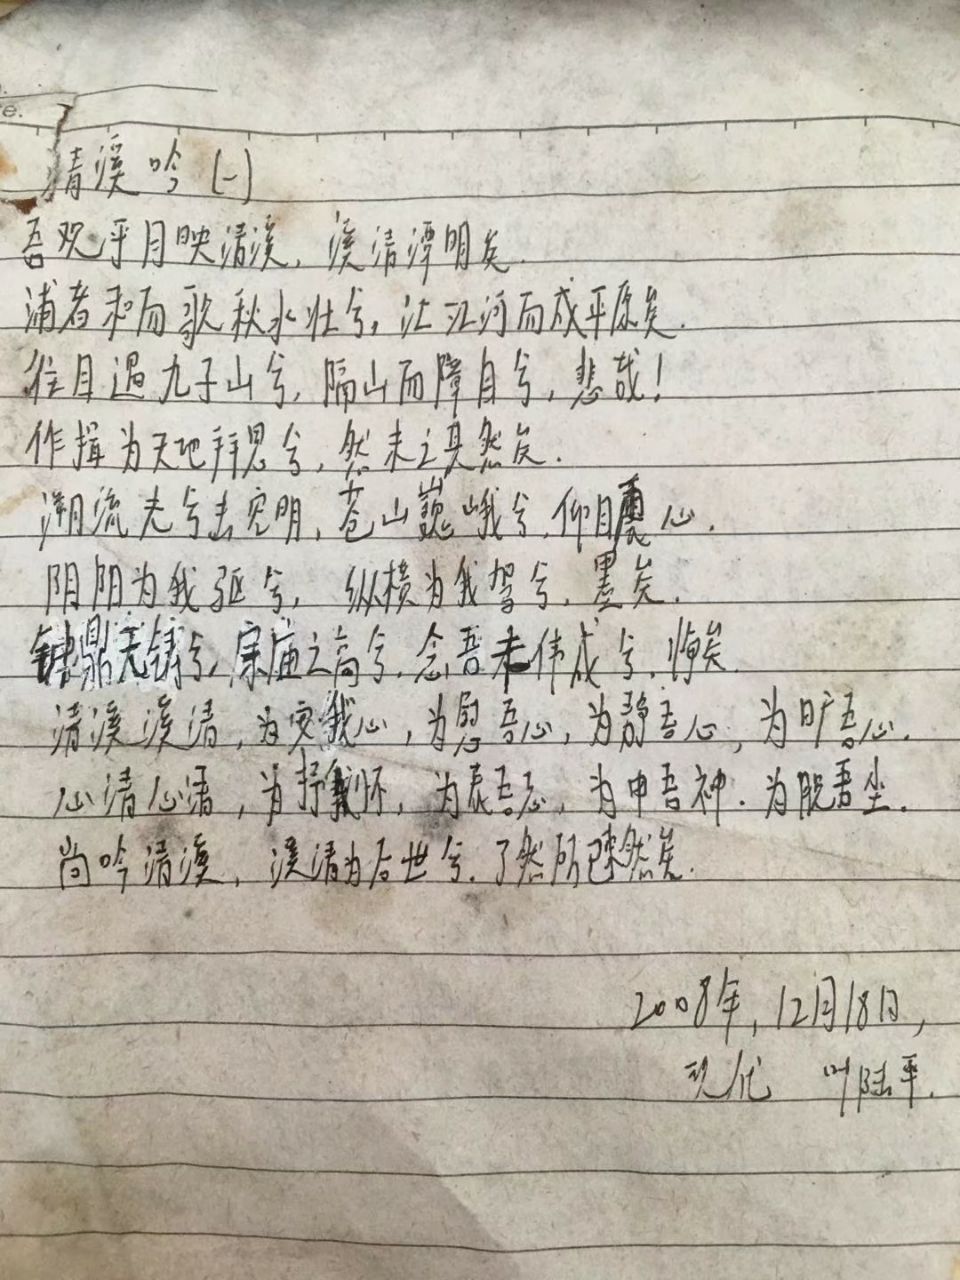 e.
清溪吟(一)
吾观乎月映清溪，溪清潭明矣.
浦者和而歌秋水壮兮，汇江河而成平原矣.
往目遇九子山兮，隔山而障目兮，悲哉！
作揖为天地拜恩兮，然未之具然矣.
溯流光兮去空明，苍山巍峨兮，仰目震心.
阴阳为我驱兮，纵横为我驾兮，墨矣.
钟鼎无铸兮，宗庙之高兮，念吾未伟成兮，悔矣.
清溪溪清，为安我心，为慰吾心，为静吾心，为旷吾心.
心清心清，为抒我怀，为表吾志，为申吾神.为脱吾尘.
尚吟清溪，溪清为后世兮.了然所然矣.
2008年，12月18日，
现代 叶陆平.